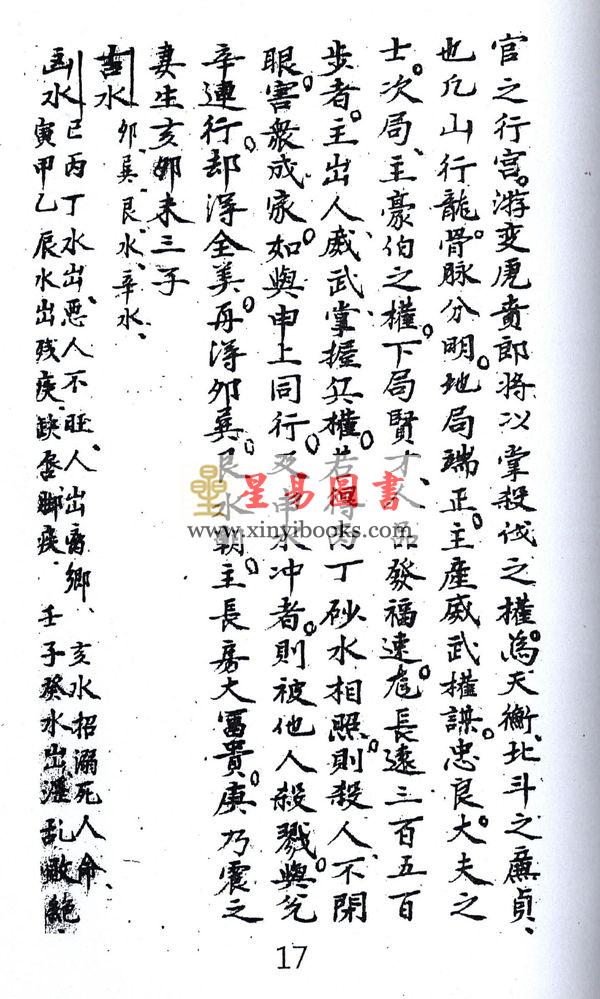 官之行宮。游变虎賁郎将以掌殺伐之權。為天衡、北斗之廉貞、
也凡山行龍骨。脉分明。地局端正。主產威武權謀。忠良大夫之
士。次局、主豪伯之權。下局賢才人品發福速。長遠三百五百
步者。主出人威武掌握兵權。若得丙丁砂水相照。則殺人不閉
眼。害衆成家。如與申上同行。又申水冲者。則被他人殺戮。與兌
辛連行。却淂全美。再淂卯巽艮水朝。主長房大富貴。庚乃震之
妻生亥卯未三子
吉水 卯、巽、艮、水、辛水、
凶水 巳丙丁水出惡人不旺、人出离鄉、亥水招溺死人命、
寅甲乙辰水出残疾、缺唇脚疾、壬子癸水出淫乱敗絶、
星易圖書
www.xinyibooks.com
17